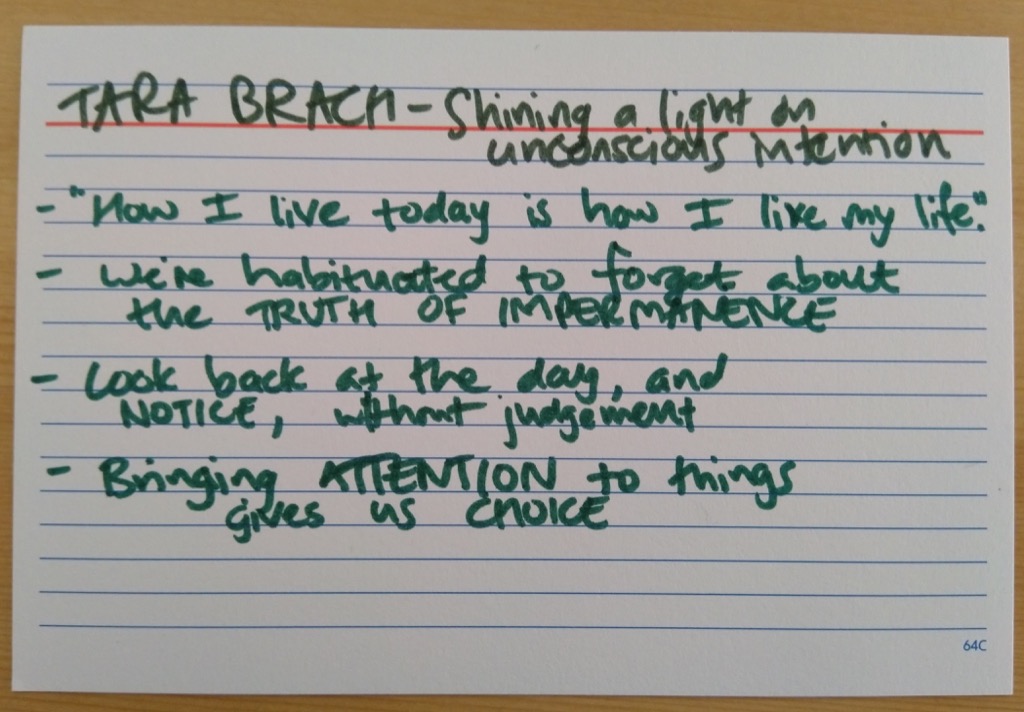 TARA BRACH - Shining a light on
unconscious intention
- "How I live today is how I live my life."
- We're habituated to forget about
the TRUTH OF IMPERMANENCE
- Look back at the day, and
NOTICE, without judgement
- Bringing ATTENTION to things
gives us CHOICE
64C